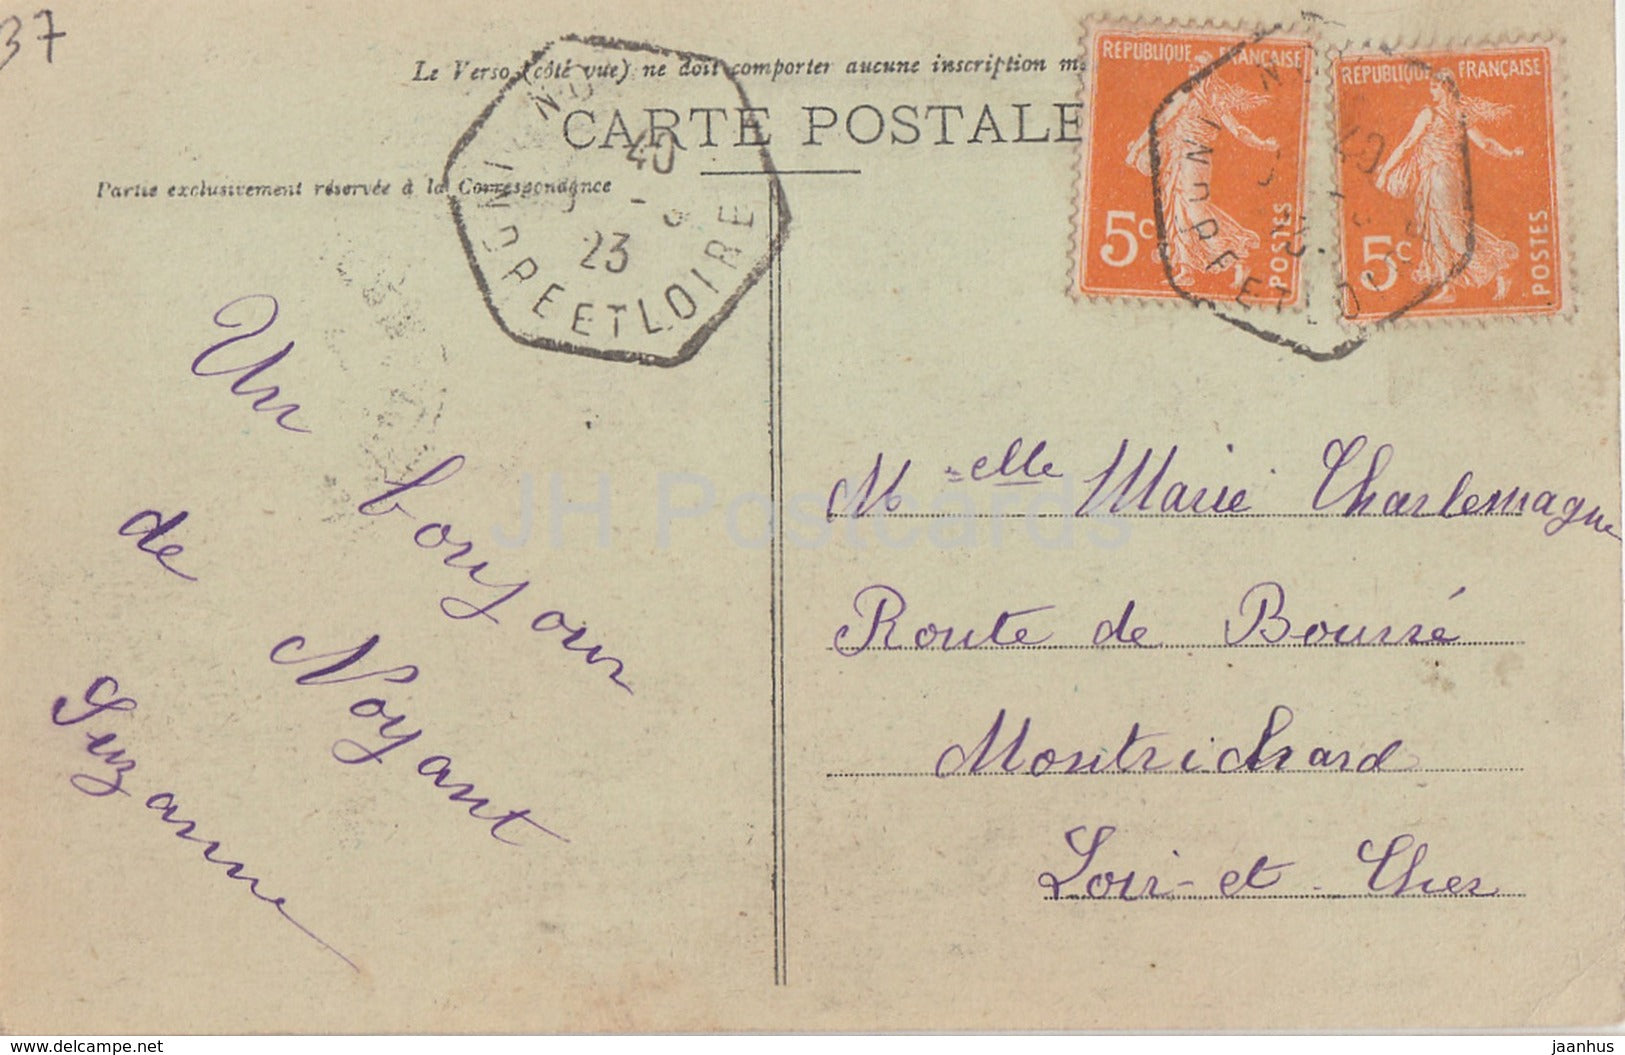 37
Le Verso (côté vue) ne doit comporter aucune inscription
CARTE POSTALE
Partie exclusivement réservée à la Correspondance
RÉPUBLIQUE FRANÇAISE
5c
POSTES
RÉPUBLIQUE FRANÇAISE
5c
POSTES
40
23
ET LOIRE
Un bonjour
de Noyant
Suzanne
M-elle Marie Charlemagne
Route de Bourré
Montrichard
Loir-et-Cher
JH Postcards
delcampe.net
jaanhus